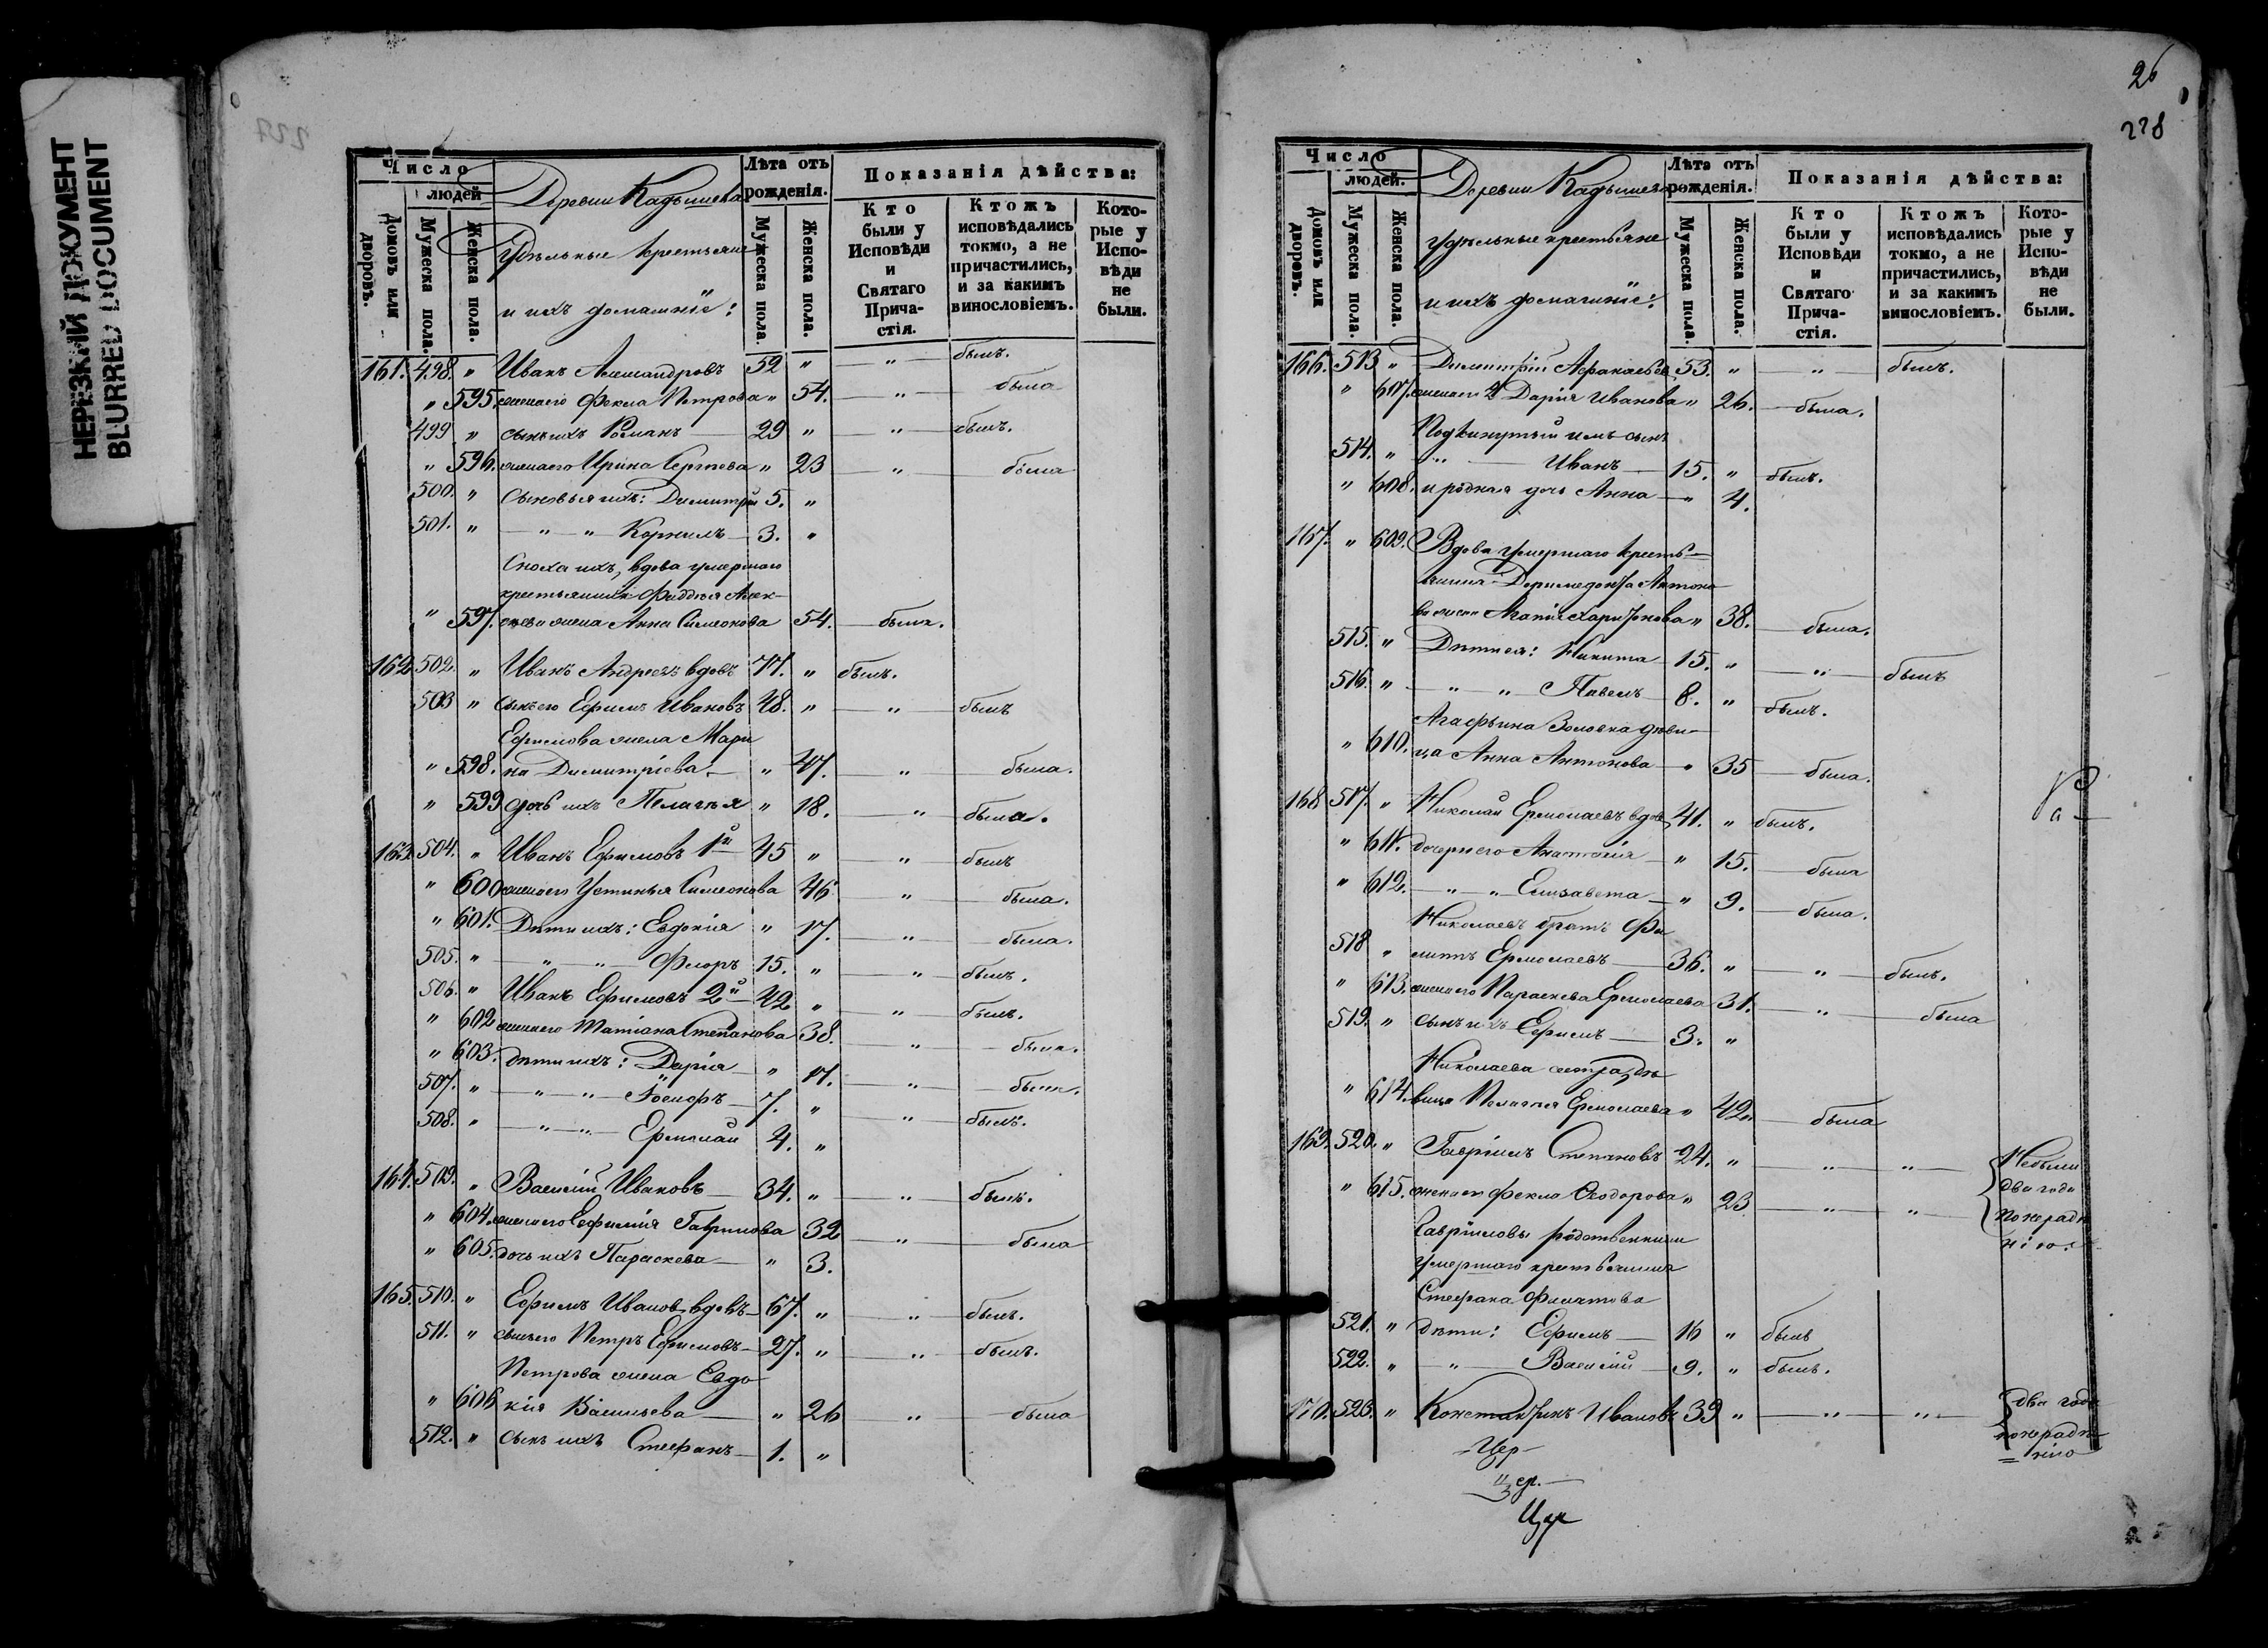 НЕРЕЗКИЙ ДОКУМЕНТ
BLURRED DOCUMENT
227
Число
людей
Домовъ или дворовъ.
Мужеска пола.
Женска пола.
Деревни Кадышева
Удѣльные крестьяне
и ихъ домашніе:
Лѣта отъ рожденія.
Мужеска пола.
Женска пола.
Показанія дѣйства:
Кто были у Исповѣди и Святаго Причастія.
Ктожъ исповѣдались токмо, а не причастились, и за какимъ винословіемъ.
Которые у Исповѣди не были.
161. 498. " Иванъ Александровъ 59 " " былъ.
" 595. жена его Фекла Петрова " 54. " была
499 " сынъ ихъ Романъ 29 " " былъ.
" 596. жена его Ирина Сергѣева " 23 " была
500. " Сыновья ихъ: Димитрій 5. "
501. " " " Корнилъ 3. "
Сноха ихъ, вдова умершаго
крестьянина Фаддея Алек-
" 597. сѣева жена Анна Симеонова 54. была.
162. 502. " Иванъ Андреевъ вдовъ 77. " былъ.
503 " сынъ его Ефимъ Ивановъ 48. " " былъ
Ефимова жена Мари
" 598. на Димитріева " 47. " была.
" 599 дочь ихъ Пелагея " 18. " была.
163. 504. " Иванъ Ефимовъ 1й 45 " " былъ
" 600 жена его Устинья Симеонова 46 " была.
" 601. Дѣти ихъ: Евдокія " 17. " была.
505. " " " Флоръ 15. " " былъ.
506. " Иванъ Ефимовъ 2й 42 " " былъ.
" 602 жена его Татіана Степанова 38. " была.
" 603. дѣти ихъ: Дарія " 11. " была.
507. " " " Іосифъ 7. " " былъ.
508. " " " Ермолай 4. "
164. 509. " Василій Ивановъ 34. " " былъ.
" 604. жена его Евфимія Гаврилова 32 " была
" 605. дочь ихъ Параскева " 3.
165. 510. " Ефимъ Ивановъ вдовъ 67. " " былъ.
511. " сынъ его Петръ Ефимовъ 27. " " былъ.
Петрова жена Евдо
" 606 кія Васильева " 26 " была
512. " сынъ ихъ Стефанъ 1. "
26
228
Число
людей.
Домовъ или дворовъ.
Мужеска пола.
Женска пола.
Деревни Кадышева
удѣльные крестьяне
и ихъ домашніе:
Лѣта отъ рожденія.
Мужеска пола.
Женска пола.
Показанія дѣйства:
Кто были у Исповѣди и Святаго Причастія.
Ктожъ исповѣдались токмо, а не причастились, и за какимъ винословіемъ.
Которые у Исповѣди не были.
166. 513 " Димитрій Афанасьевъ 53. " " былъ.
" 607. жена его 2 Дарія Иванова " 26. была.
Подкинутый имъ сынъ
514. " " Иванъ 15. " былъ.
" 608. и родная дочь Анна " 4.
167. " 609. Вдова умершаго кресть-
янина Доримедонта Антоно
ва жена Агафія Харитонова " 38. была.
515. " Дѣти ея: Никита 15. " " былъ
516. " " " Павелъ 8. " былъ.
Агафьина золовка дѣви-
" 610. ца Анна Антонова " 35 была.
168 517. " Николай Ермолаевъ вдовъ 41. " былъ.
" 611. дочери его Анастасія " 15. была
" 612. " " Елисавета " 9. была.
Николаевъ братъ Фи
518 " липпъ Ермолаевъ 36. " " былъ.
" 613. жена его Параскева Ермолаева 31. " была
519. " сынъ ихъ Ефимъ 3. "
Николаева сестра дѣ
" 614. вица Пелагея Ермолаева " 42. была
169. 520. " Гавріилъ Степановъ 24. " " " Небыли
" 615. жена его Фекла Ѳеодорова " 23 " " два года
по нерадѣ
нію.
Гавріиловы родственники
умершаго крестьянина
Стефана Филатова
521. " дѣти: Ефимъ 16 " былъ
522. " " Василій 9. " былъ.
170. 523. " Константинъ Ивановъ 39 " " " два года
по нерадѣ
нію
Цер